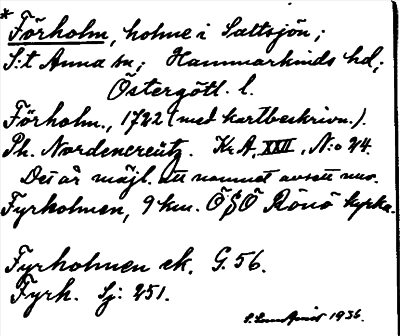 *Förholm, holme i Saltsjön;
S:t Anna sn; Hammarkinds hd;
Östergötl. l.
Förholm., 1722 (med kartbeskrivn.).
Ph. Nordencreütz. Kr.A, XXII, N:o 24.
Det är möjl. att namnet avsett nuv.
Fyrholmen, 9 km. ÖSÖ Rönö kyrka.
Fyrholmen ek. G. 56.
Fyrh. Sj: 251.
1936.